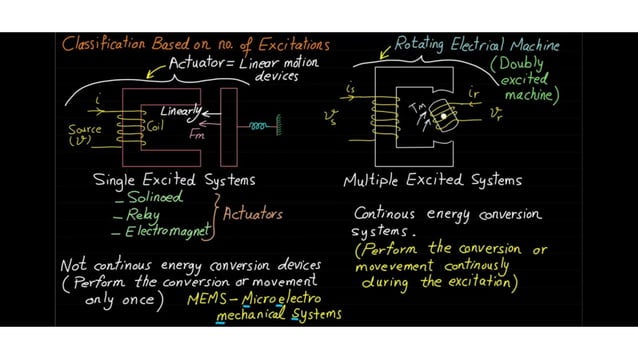 Classification Based on no. of Excitations
Actuator = Linear motion
devices
i
Source
(v)
Coil
Linearly
Fm
Single Excited Systems
- Solinoed
- Relay
- Electromagnet
Actuators
Not continous energy conversion devices
(Perform the conversion or movement
only once)
MEMS - Micro electro
mechanical systems
Rotating Electrical Machine
(Doubly
excited
machine)
is
vs
Tm
ir
vr
Multiple Excited Systems
Continous energy conversion
systems.
(Perform the conversion or
movement continously
during the excitation)